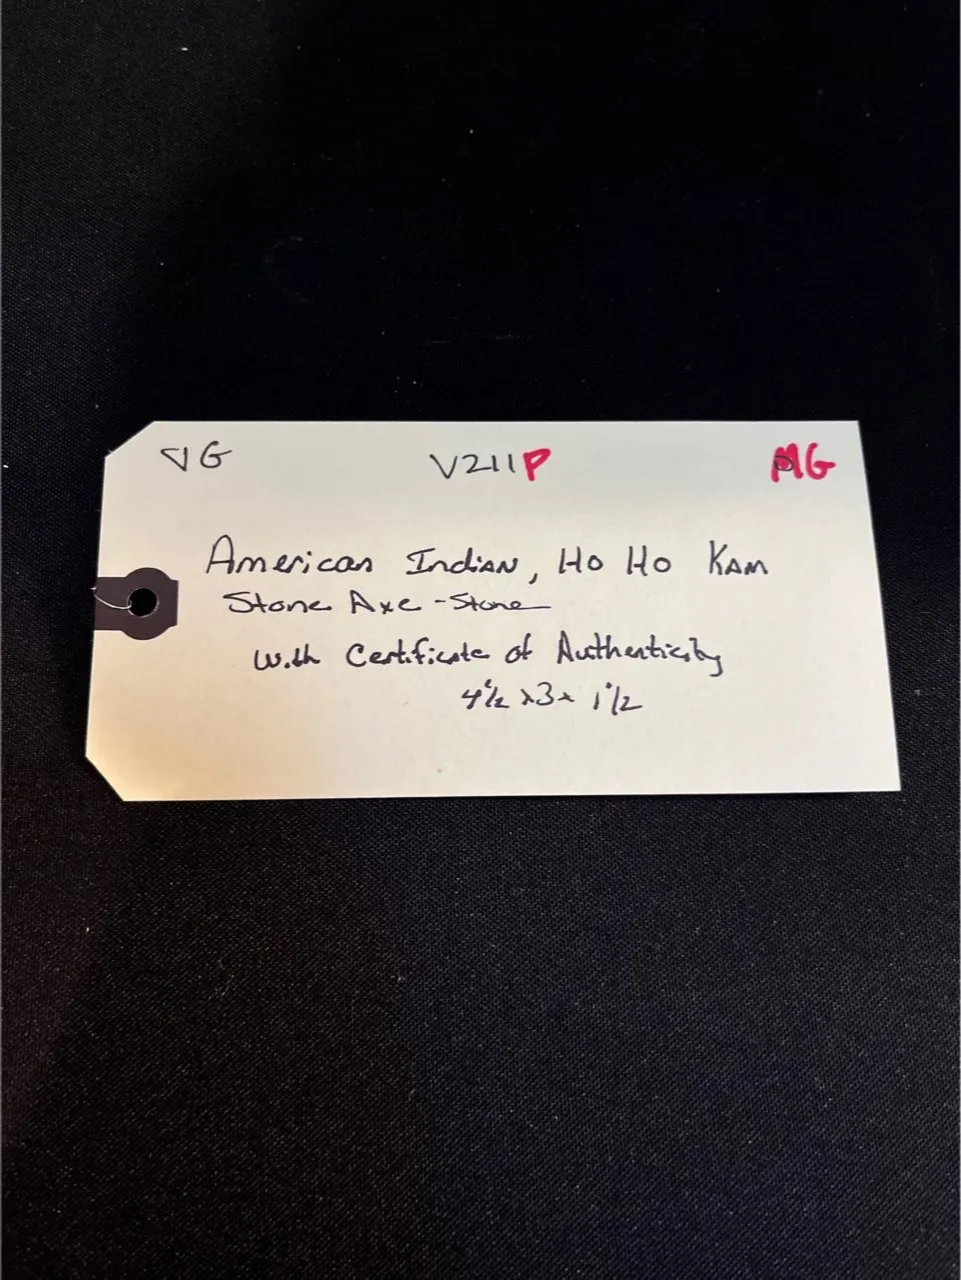 VG V211P MG
American Indian, Ho Ho Kam
Stone Axe - Stone
with Certificate of Authenticity
4 1/2 x 3 x 1 1/2